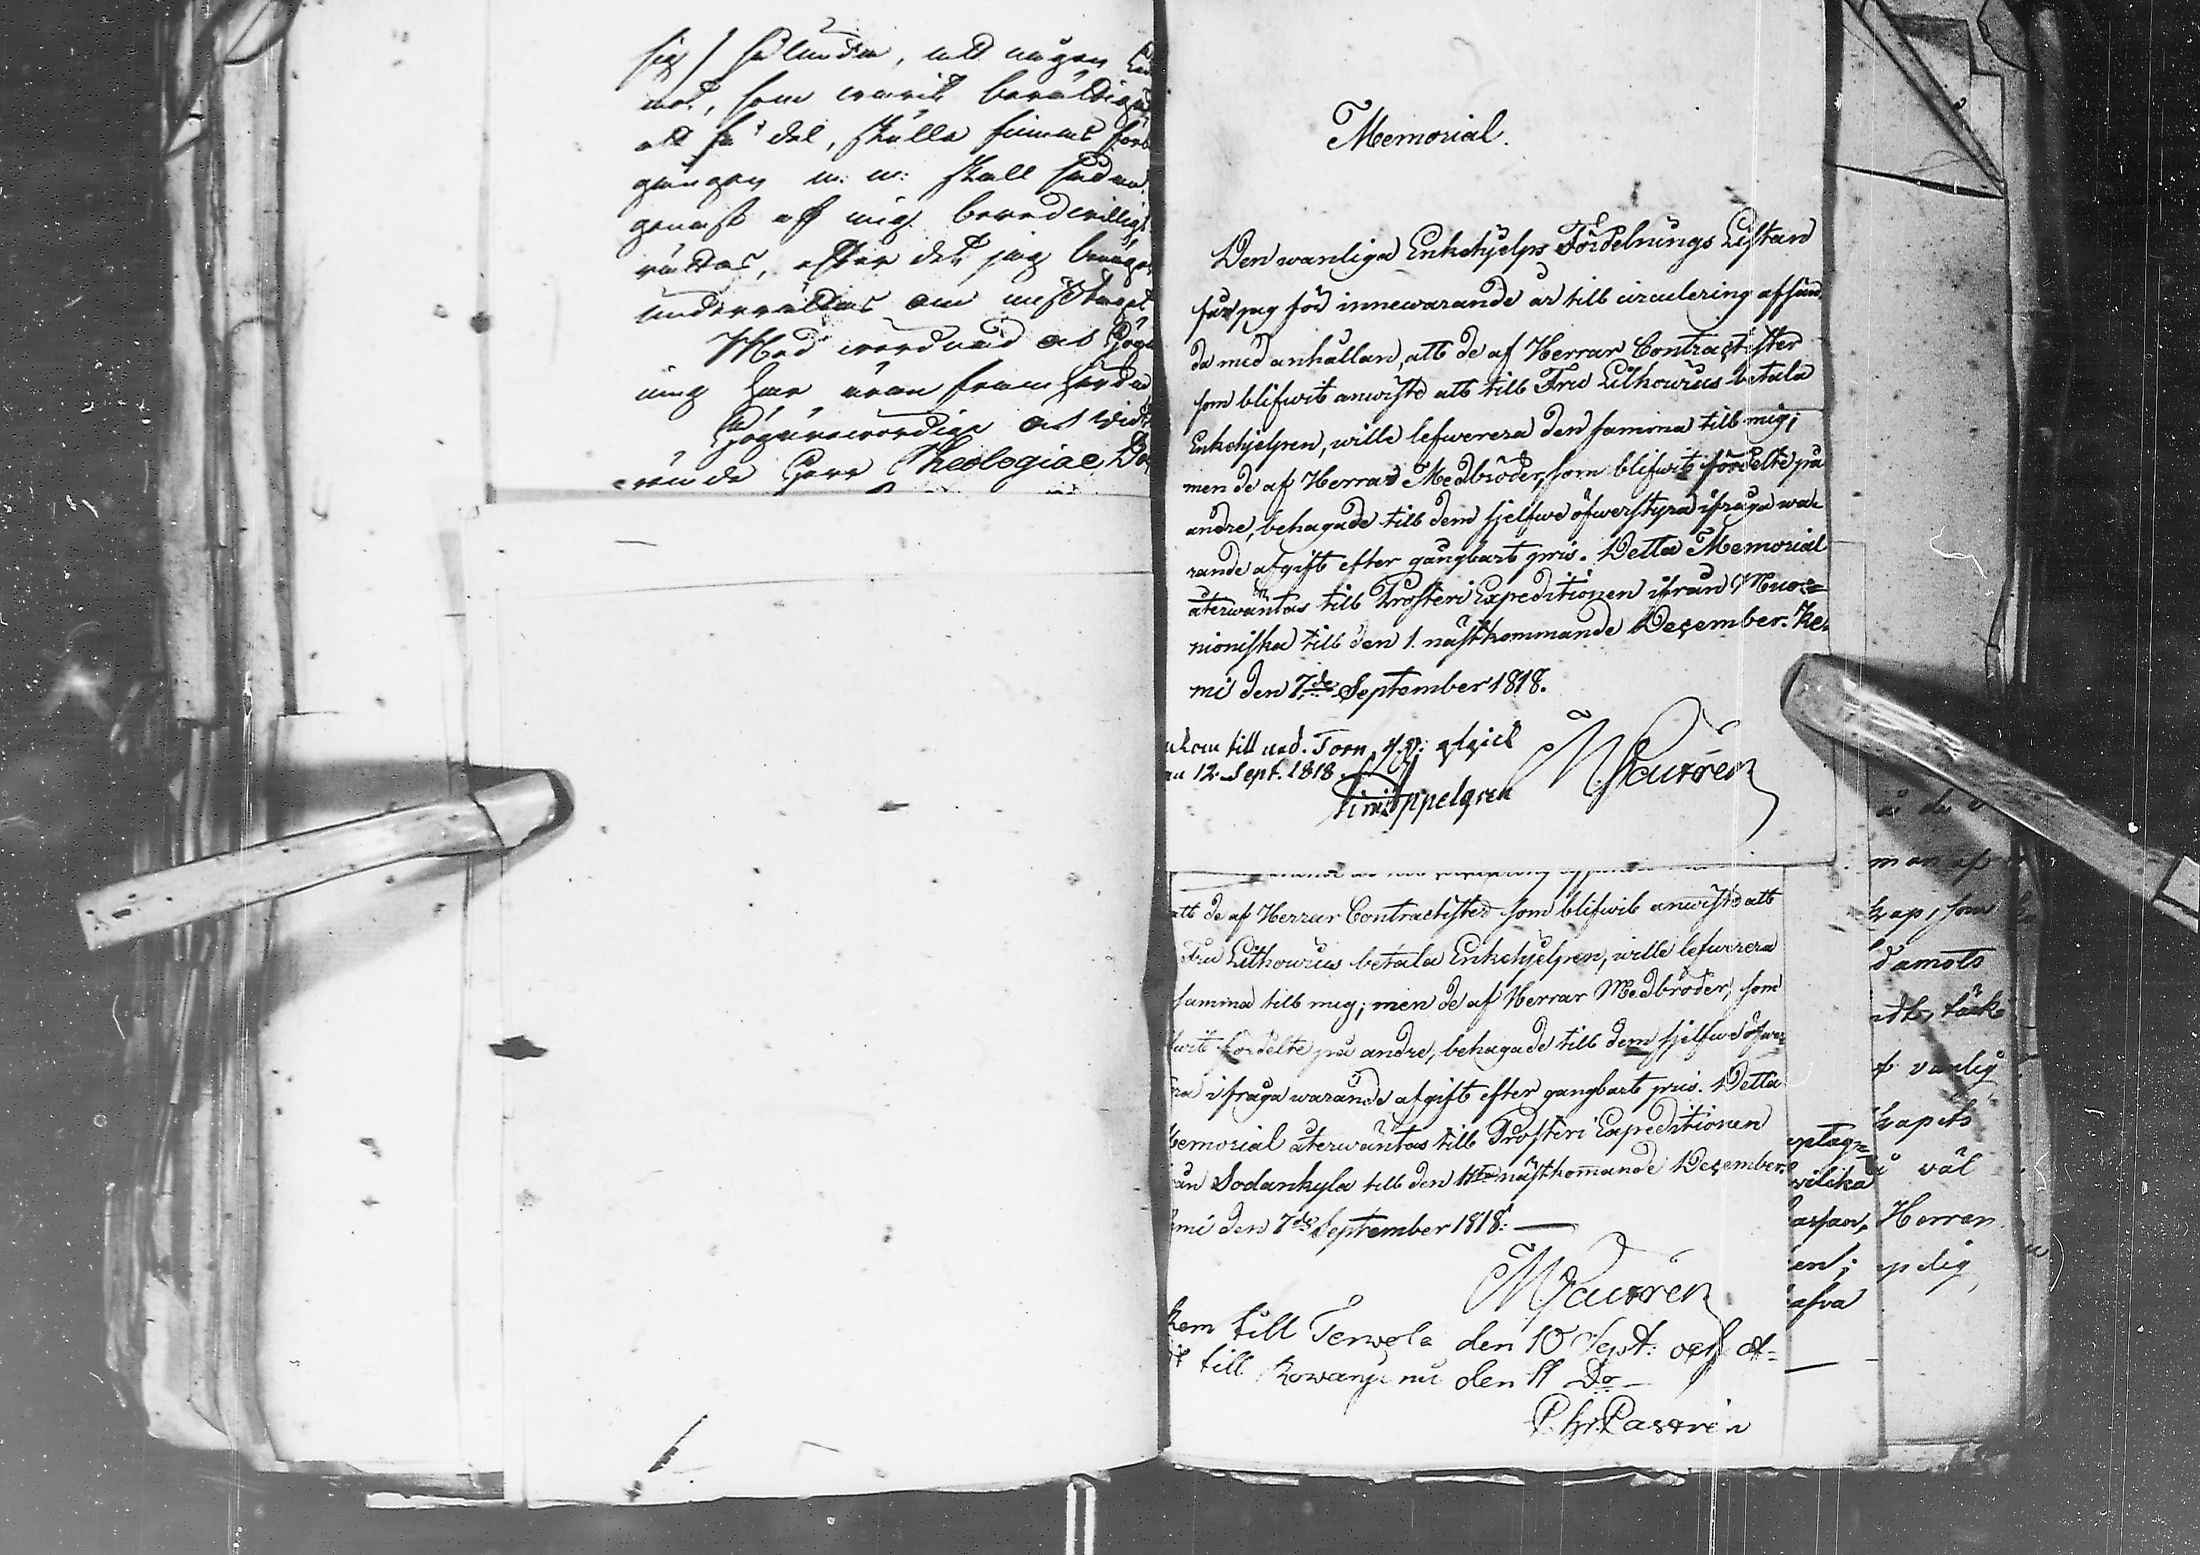 sig)så lunda, att någon
mot, som varit berättigad
att få del, skulle finnas förbi
gången m: m: skall sådant
genast af mig beredvilligt
rättas, efter det jag benäget
underrättas om misstaget
Med vördnad och Högakt
ning har äran framhärda
Högärevördige och Vidt
römde Herr Theologiae Do
Memorial.
Den wanliga Enkehjelps Fördelnings Listan
får jag för innewarande år till circulering afsän
da med anhållan, att de af Herrar Contractister
som blifwit anwiste att till Fru Lithowius betala
Enkehjelpen, wille lefwerera den samma till mig;
men de af Herrar Medbröder, som blifwit fördelte på
andre, behagade till dem sjelfwe öfwerstyra ifråga wa-
rande afgift efter gångbart pris. Detta Memorial
återwäntas till Prosteri Expeditionen ifrån Muo-
nioniska till den 1. nästkommande December. Ke-
mi den 7de September 1818.
M Castrén
ankom till ned. Torn. afgick
12 Sept. 1818
Appelgren
att de af Herrar Contractister som blifwit anwiste att
Fru Lithowius betala Enkehjelpen, wille lefwerera
samma till mig; men de af Herrar Medbröder, som
fwit fördelte på andre, behagade till dem sjelfwe öfwer
ra ifråga warande afgift efter gangbart pris. Detta
Memorial återwäntas till Prosteri Expeditionen
rån Sodankyla till den 1sta nästkommande December.
Kemi den 7de September 1818. —
M Castrén
kom till Terwola den 10 Sept: och af-
till Rowaniemi den 11 Do
Castrén
man af
kap, som
damots
vanlig
kapets
väl
Herren
optag-
hvilka
en;